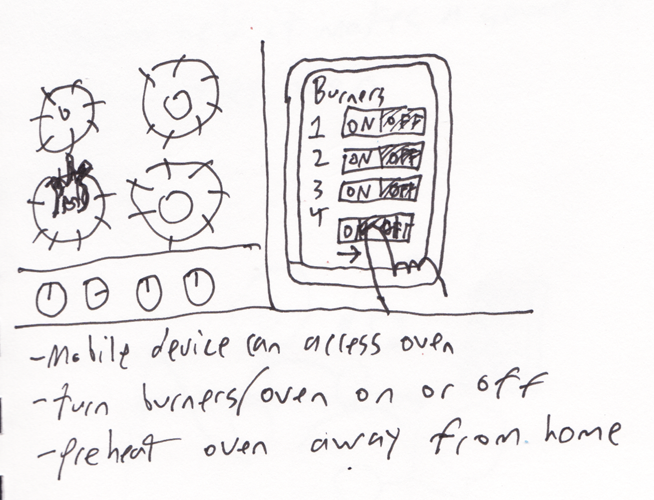 Burners
1 ON OFF
2 ON OFF
3 ON OFF
4 OFF
-Mobile device can access oven
-turn burners/oven on or off
-preheat oven away from home